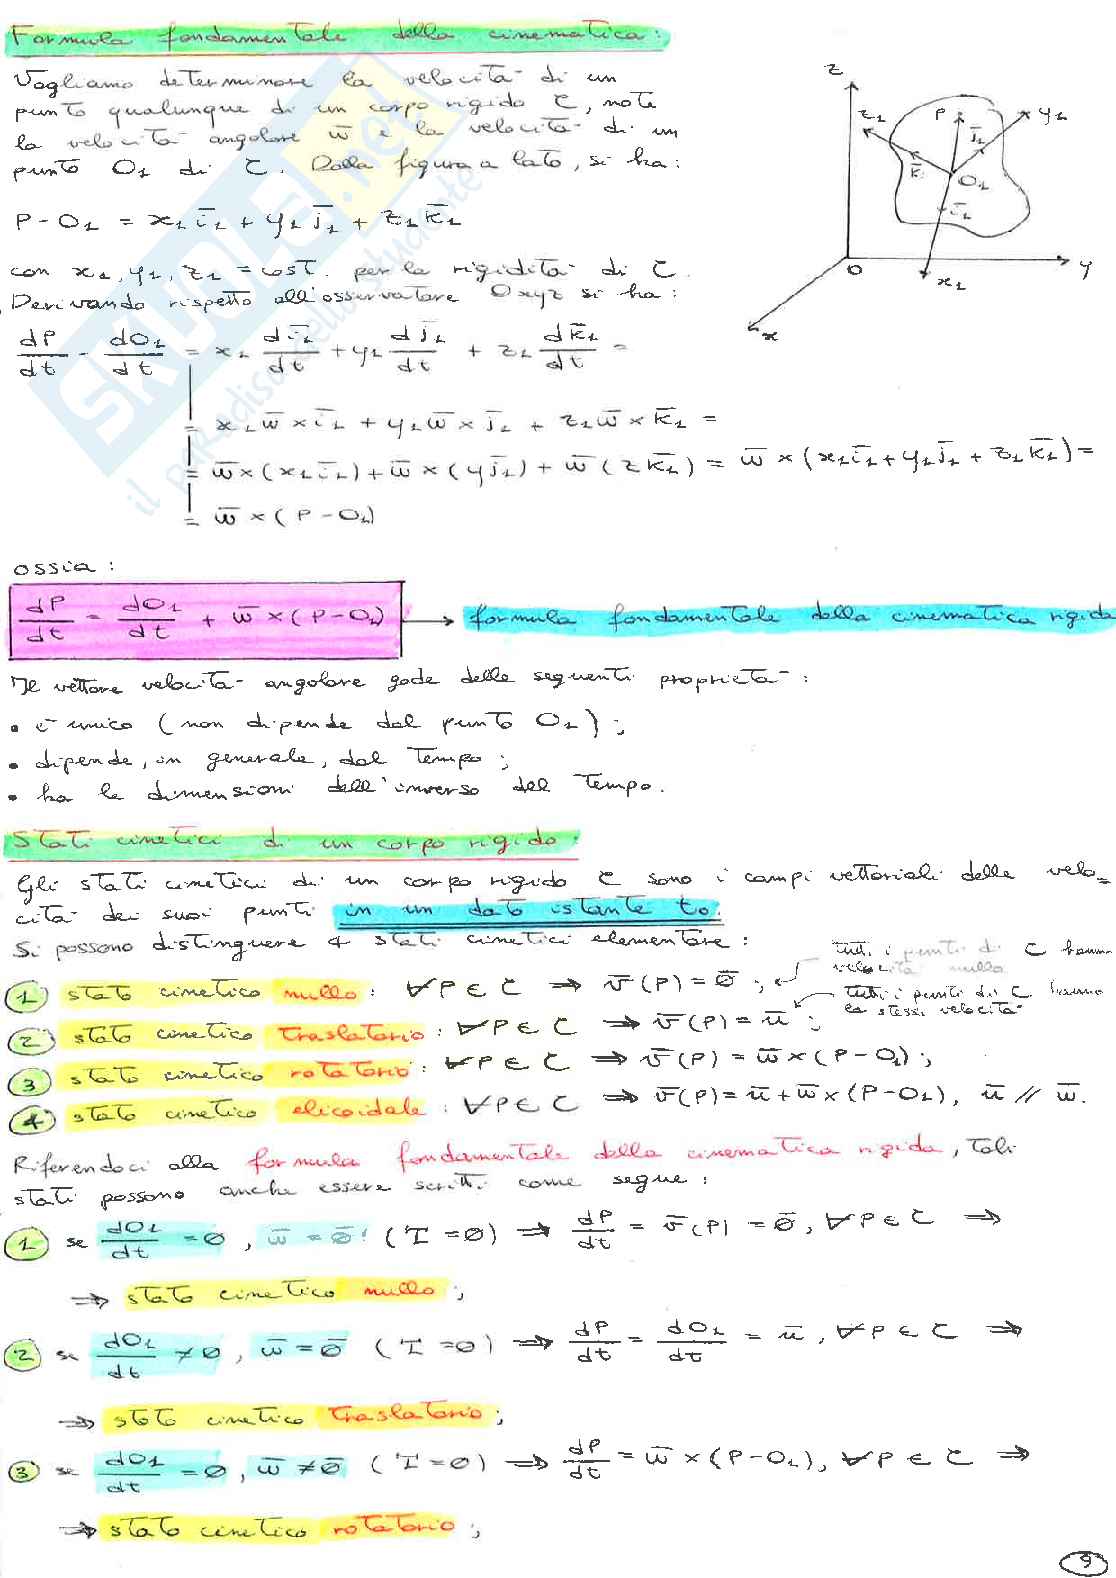 Formula fondamentale della cinematica:
Vogliamo determinare la velocità di un
punto qualunque di un corpo rigido C, note
la velocità angolare w̄ e la velocità di un
punto O₁ di C. Dalla figura a lato, si ha:
P-O₁ = x₁ī₁ + y₁j̄₁ + z₁k̄₁
con x₁, y₁, z₁ = cost. per la rigidità di C.
Derivando rispetto all'osservatore Oxyz si ha:
dP/dt - dO₁/dt = x₁ dī₁/dt + y₁ dj̄₁/dt + z₁ dk̄₁/dt =
= x₁w̄×ī₁ + y₁w̄×j̄₁ + z₁w̄×k̄₁ =
= w̄×(x₁ī₁)+w̄×(yj̄₁)+w̄(zk̄₁) = w̄×(x₁ī₁+y₁j̄₁+z₁k̄₁)=
= w̄×(P-O₁)
z
z₁
P
y₁
j̄₁
k̄₁
O₁
ī₁
x₁
O
y
x
ossia:
dP/dt = dO₁/dt + w̄×(P-O₁) → formula fondamentale della cinematica rigida
Il vettore velocità angolare gode delle seguenti proprietà:
• è unico (non dipende dal punto O₁);
• dipende, in generale, dal tempo;
• ha le dimensioni dell'inverso del tempo.
Stati cinetici di un corpo rigido:
Gli stati cinetici di un corpo rigido C sono i campi vettoriali delle velo=
cità dei suoi punti in un dato istante t₀.
Si possono distinguere 4 stati cinetici elementare:
tutti i punti di C hanno
velocità nulla
1 stato cinetico nullo: ∀P∈C ⇒ v̄(P)=ō;
tutti i punti di C hanno
la stessa velocità
2 stato cinetico traslatorio: ∀P∈C ⇒ v̄(P)=ū;
3 stato cinetico rotatorio: ∀P∈C ⇒ v̄(P) = w̄×(P-O₁);
4 stato cinetico elicoidale: ∀P∈C ⇒ v̄(P)=ū+w̄×(P-O₁), ū // w̄.
Riferendoci alla formula fondamentale della cinematica rigida, tali
stati possono anche essere scritti come segue:
1 se dO₁/dt =ø, w̄=ø̄ (I=ø) ⇒ dP/dt = v̄(P) = ø̄, ∀P∈C ⇒
⇒ stato cinetico nullo;
2 se dO₁/dt ≠ø, w̄=ø̄ (I=ø) ⇒ dP/dt = dO₁/dt = ū, ∀P∈C ⇒
⇒ stato cinetico traslatorio;
3 se dO₁/dt =ø, w̄≠ø̄ (I=ø) ⇒ dP/dt = w̄×(P-O₁), ∀P∈C ⇒
⇒ stato cinetico rotatorio;
9
SKUOLA.net
il paradiso dello studente